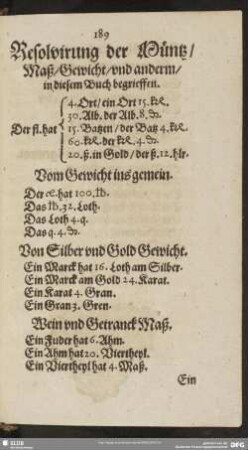 189
Resolvirung der Müntz/
Maß/Gewicht/vnd anderm/
in diesem Buch begrieffen.
4. Ort/ ein Ort 15. kr.
30. Alb. der Alb. 8. ₰.
Der fl. hat 15. Batzen/ der Batz 4. kr.
60. kr. der kr. 4. ₰.
20. ß. in Gold/ der ß. 12. hlr.
Vom Gewicht ins gemein.
Der ct. hat 100. lb.
Das lb. 32. Loth.
Das Loth 4. q.
Das q. 4. ₰.
Von Silber vnd Gold Gewicht.
Ein Marck hat 16. Loth am Silber.
Ein Marck am Gold 24. Karat.
Ein Karat 4. Gran.
Ein Gran 3. Gren.
Wein vnd Getranck Maß.
Ein Fuder hat 6. Ahm.
Ein Ahm hat 20. Viertheyl.
Ein Viertheyl hat 4. Maß.
Ein
SLUB